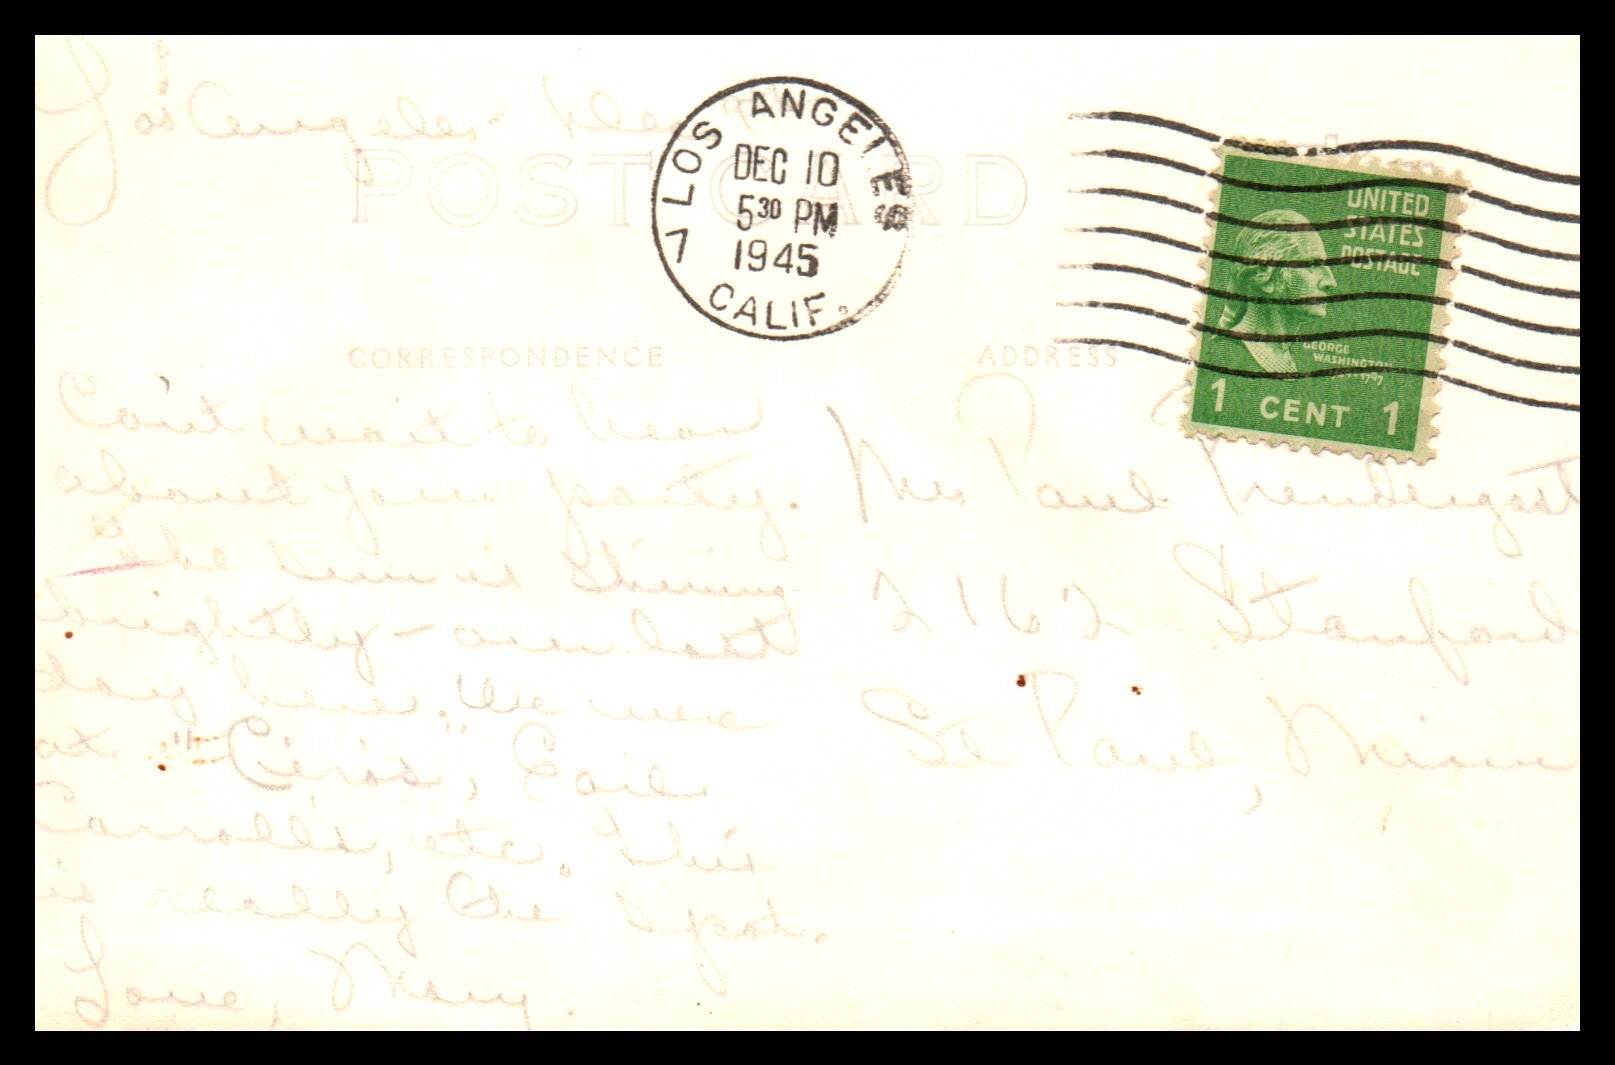 Los Angeles - Dec
POST CARD
7 LOS ANGELES
DEC 10
5 30 PM
1945
CALIF.
UNITED
STATES
POSTAGE
GEORGE
WASHINGTON
1 CENT 1
CORRESPONDENCE
ADDRESS
Can't wait to hear
about your party.
The sun is shining
brightly - our last
day here. We were
at "Ciro's", Earl
Carroll's, etc. This
is really the spot.
Love, Mary.
Mr Paul
2162 Stanford
St Paul, Minn